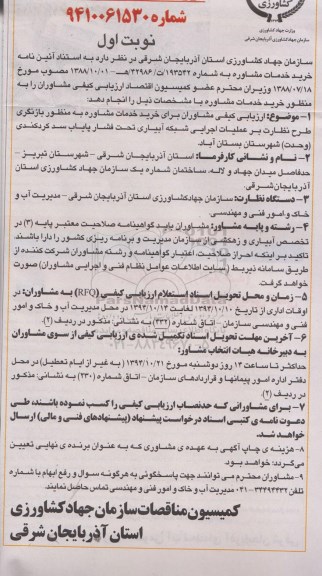 کشاورزی
وزارت جهاد کشاورزی
سازمان جهاد کشاورزی آذربایجان شرقی
شماره ۹۴۱۰۰۶۱۵۳۰
نوبت اول
سازمان جهاد کشاورزی استان آذربایجان شرقی در نظر دارد به استناد آئین نامه
خرید خدمات مشاوره به شماره ۱۹۳۵۴۲/ت/۴۲۹۸۶هـ – ۱۳۸۸/۱۰/۰۱ مصوب مورخ
۱۳۸۸/۰۷/۱۸ وزیران محترم عضو کمیسیون اقتصاد ارزیابی کیفی مشاوران را به
منظور خرید خدمات مشاوره با مشخصات ذیل را انجام دهد:
۱– موضوع: ارزیابی کیفی مشاوران برای خرید خدمات مشاوره به منظور بازنگری
طرح نظارت بر عملیات اجرایی شبکه آبیاری تحت فشار پایاب سد گردکندی
(وحدت) شهرستان بستان آباد.
۲– نام و نشانی کارفرما: استان آذربایجان شرقی – شهرستان تبریز –
حدفاصل میدان جهاد و لاله، ساختمان شماره یک سازمان جهاد کشاورزی استان
آذربایجان شرقی.
۳– دستگاه نظارت: سازمان جهادکشاورزی استان آذربایجان شرقی – مدیریت آب و
خاک و امور فنی و مهندسی.
۴– رشته و پایه مشاور: مشاوران باید گواهینامه صلاحیت معتبر پایه (۳) در
تخصص آبیاری و زهکشی از سازمان مدیریت و برنامه ریزی کشور را دارا باشند
تاکید بر اینکه احراز صلاحیت، اعتبار گواهینامه و رشته مشاوران شرکت کننده از
طریق سامانه ذیربط (سایت اطلاعات عوامل نظام فنی و اجرایی مشاوران) صورت
خواهد گرفت.
۵– زمان و محل تحویل اسناد استعلام ارزیابی کیفی (RFQ) به مشاوران: در
اوقات اداری از تاریخ ۱۳۹۴/۱۰/۱۰ لغایت ۱۳۹۴/۱۰/۱۳ در محل مدیریت آب و خاک و امور
فنی و مهندسی سازمان – اتاق شماره (۴۳۲) به نشانی: مذکور در ردیف (۲).
۶– آخرین مهلت تحویل اسناد تکمیل شده ی ارزیابی کیفی از سوی مشاوران
به دبیرخانه هیات انتخاب مشاور:
حداکثر تا ساعت ۱۳ روز دوشنبه مورخ ۱۳۹۴/۱۰/۲۱ (به غیر از ایام تعطیل) در محل
دفتر اداره امور پیمانها و قراردادهای سازمان – اتاق شماره (۲۳۰) به نشانی: مذکور
در ردیف (۲)
۷– برای مشاورانی که حدنصاب ارزیابی کیفی را کسب نموده باشند، طی
دعوت نامه ی کتبی اسناد درخواست پیشنهاد (پیشنهادهای فنی و مالی) ارسال
خواهد شد.
۸– هزینه ی چاپ آگهی به عهده ی مشاوری که به عنوان برنده ی نهایی تعیین
می گردد؛ خواهد بود.
۹– مشاوران محترم می توانند جهت پاسخگوئی به هرگونه سوال و رفع ابهام با شماره
تلفن ۳۴۴۹۴۴۳۳–۰۴۱ مدیریت آب و خاک و امور فنی و مهندسی تماس حاصل نمایند.
کمیسیون مناقصات سازمان جهاد کشاورزی
استان آذربایجان شرقی